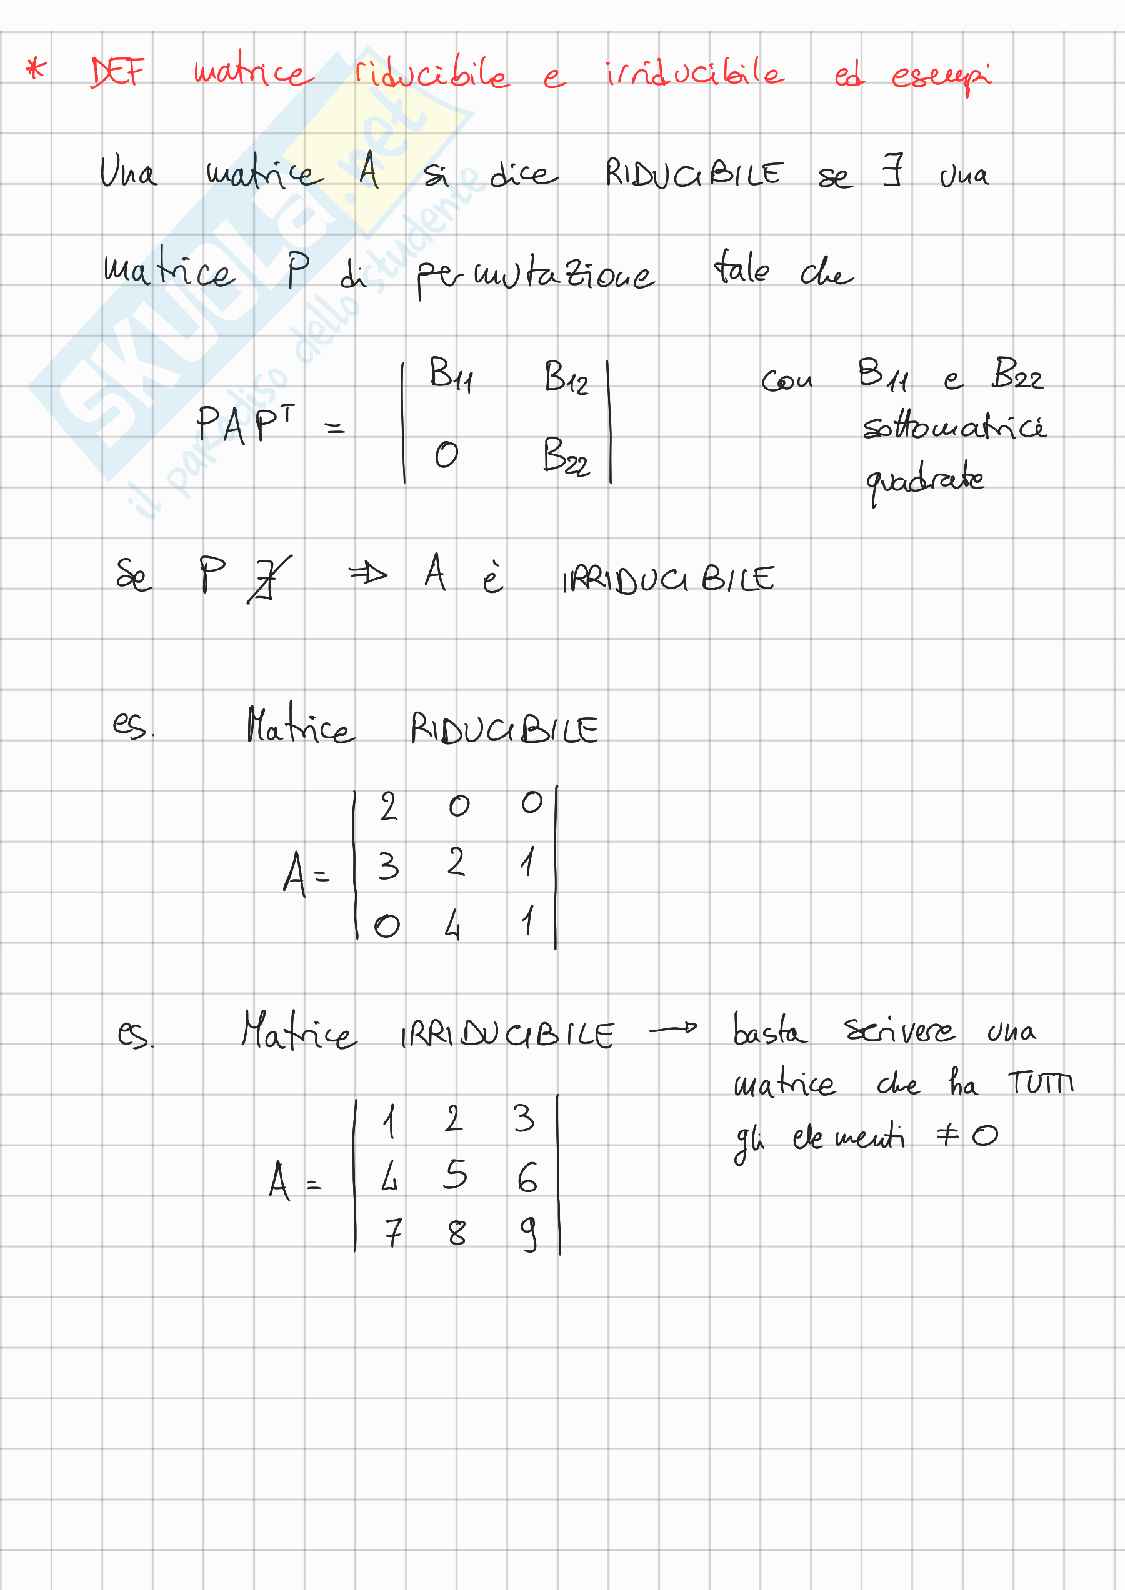 * DEF matrice riducibile e irriducibile ed esempi
Una matrice A si dice RIDUCIBILE se ∃ una
matrice P di permutazione tale che
PAPᵀ = | B₁₁ B₁₂ |
| 0 B₂₂ |
con B₁₁ e B₂₂
sottomatrici
quadrate
Se P ∄ ⇒ A è IRRIDUCIBILE
es. Matrice RIDUCIBILE
A = | 2 0 0 |
| 3 2 1 |
| 0 4 1 |
es. Matrice IRRIDUCIBILE → basta scrivere una
matrice che ha TUTTI
gli elementi ≠ 0
A = | 1 2 3 |
| 4 5 6 |
| 7 8 9 |
SKUOLA.net
il paradiso dello studente